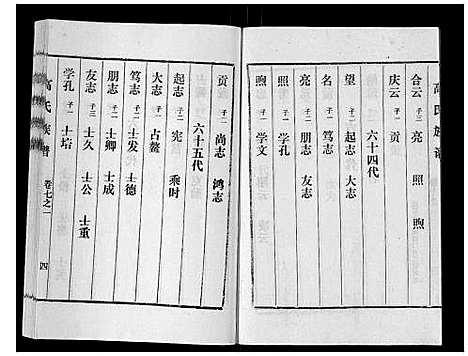 合云 子三 亮 照 煦
庆云 子一 贡
六十四代
望 子二 起志 大志
名 子一 笃志
亮 子二 朋志 友志
照 子一 学孔
煦 子一 学文
贡 子二 尚志 鸿志
六十五代
起志 子二 宪 乘时
大志 子一 占鳌
笃志 子二 士发 士德
朋志 子二 士卿 士成
友志 子三 士久 士公 士重
学孔 子一 士培
高氏族谱 卷七之一 四